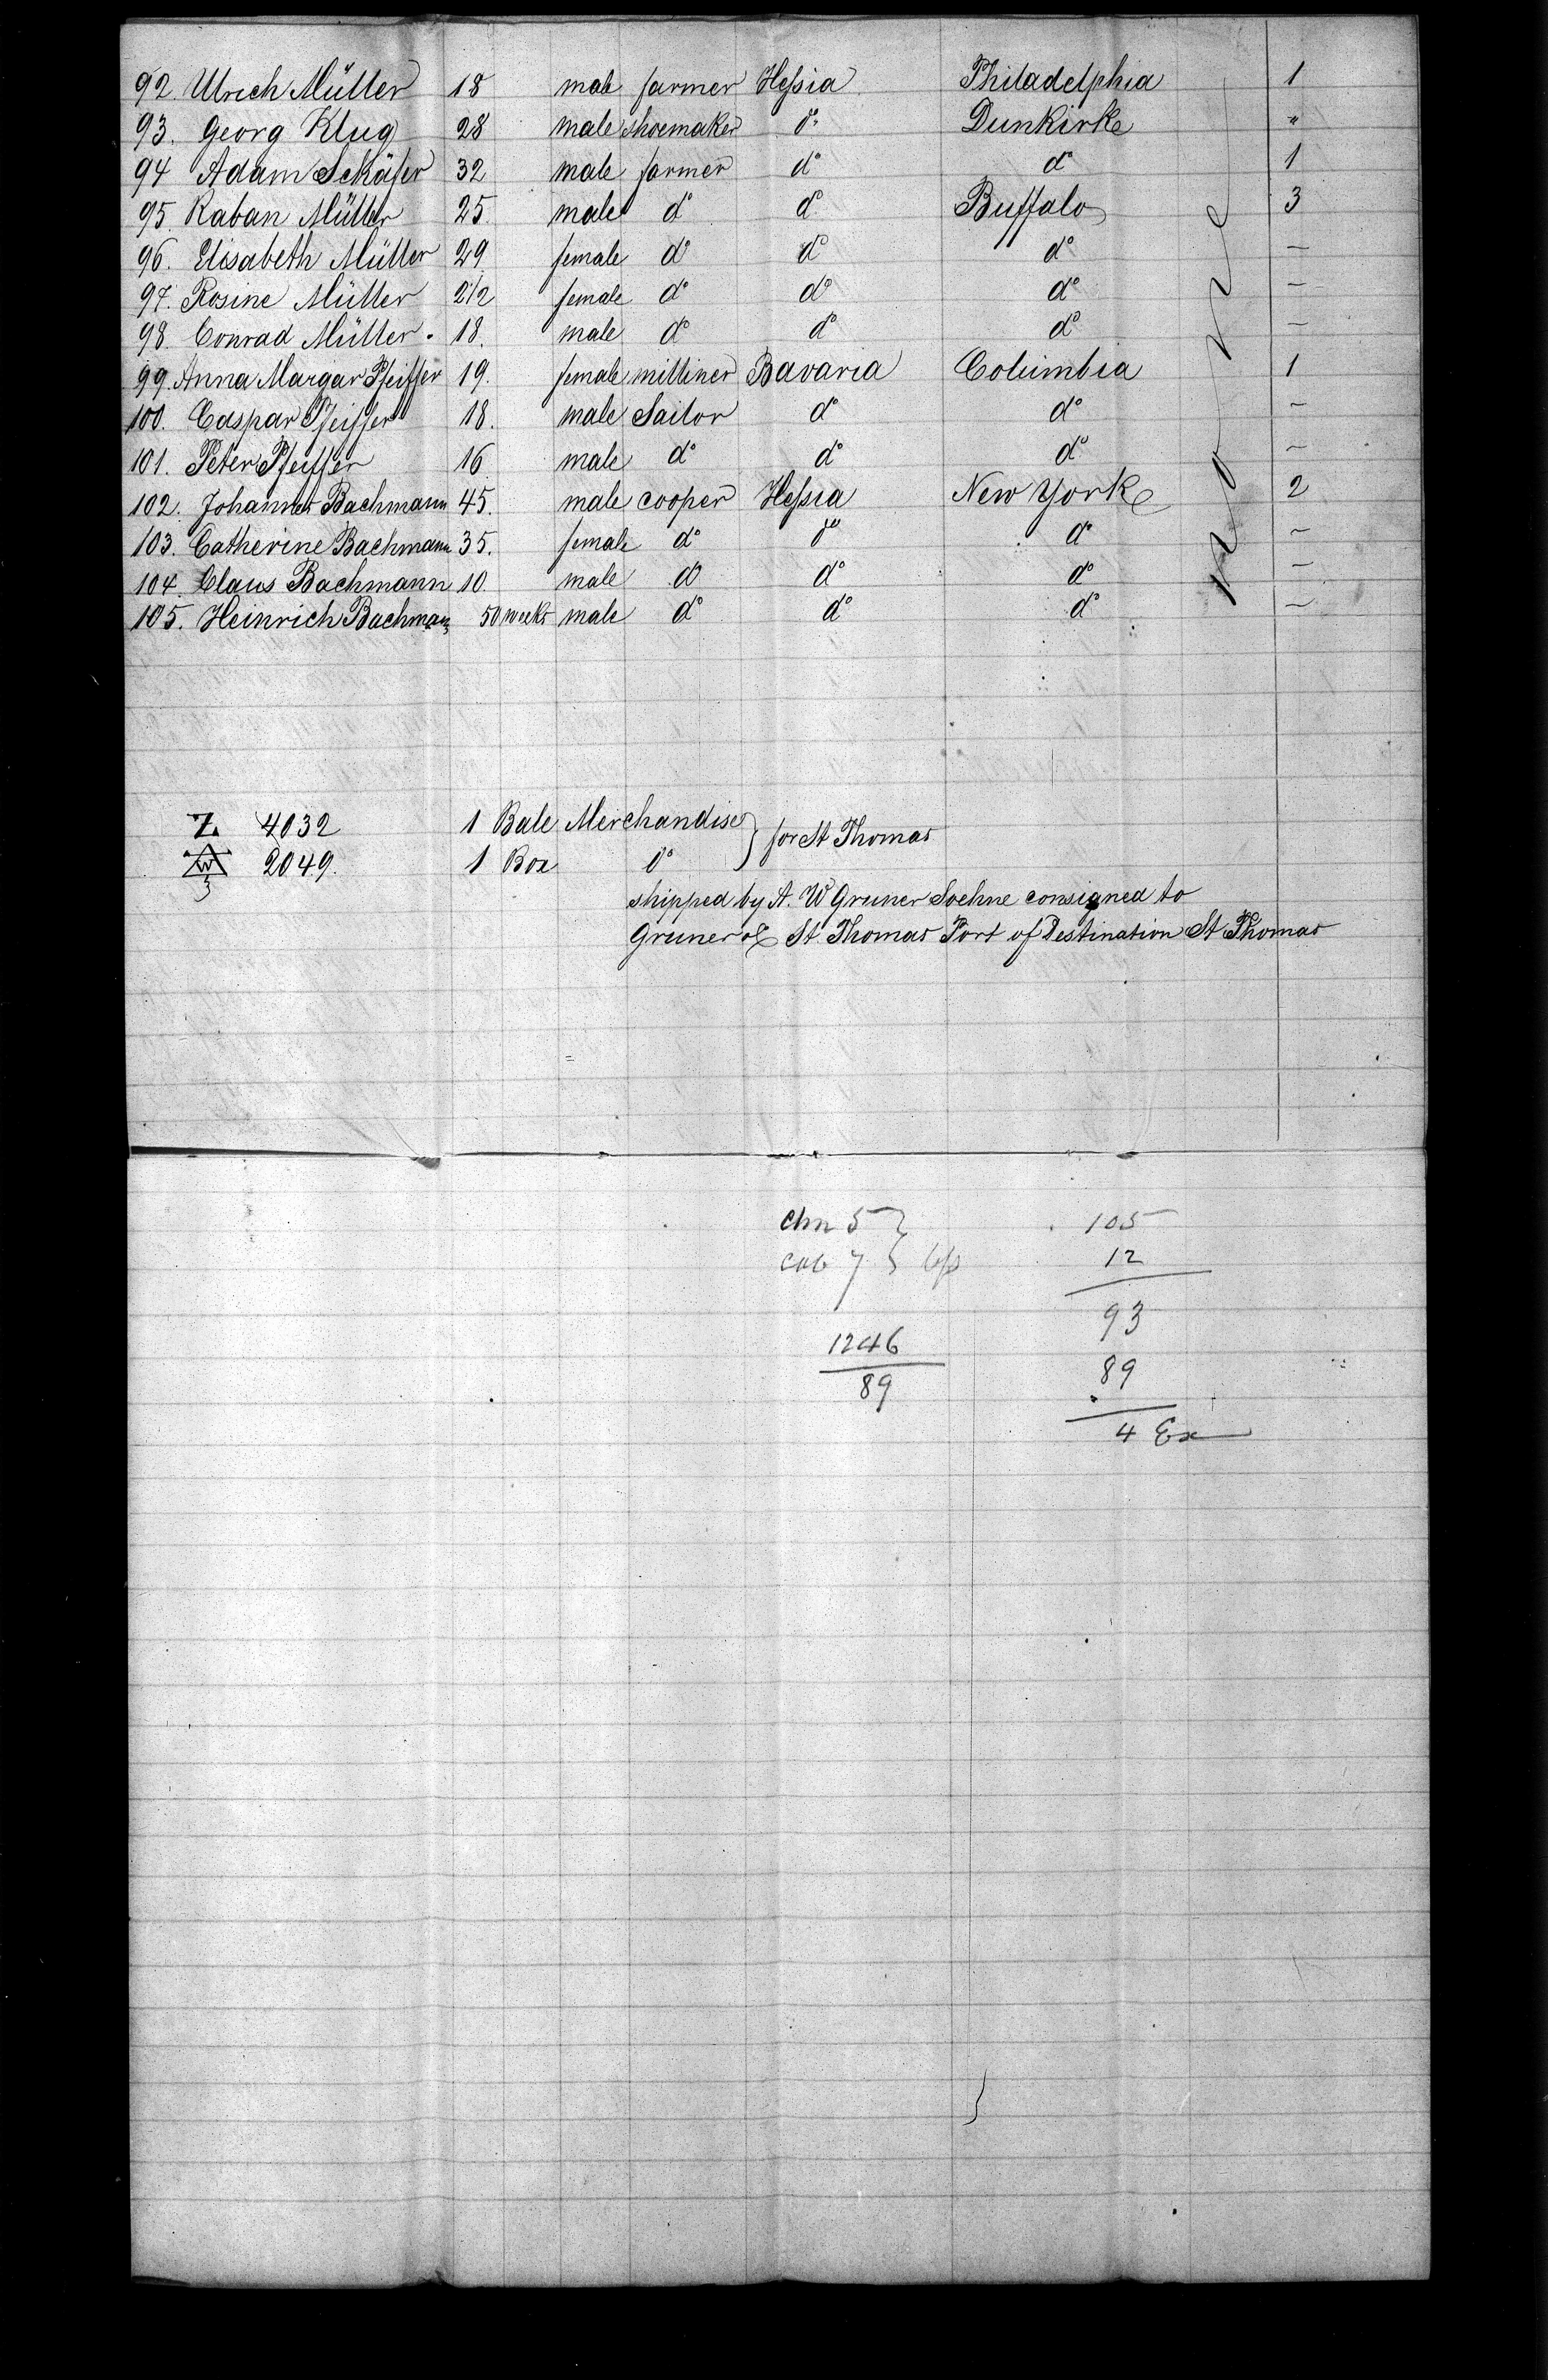 92. Ulrich Müller 18 male farmer Hessia Philadelphia 1
93. Georg Klug 28 male shoemaker do Dunkirke "
94 Adam Schäfer 32 male farmer do do 1
95. Raban Müller 25. male do do Buffalo 3
96. Elisabeth Müller 29 female do do do –
97. Rosine Müller 2 1/2 female do do do –
98. Conrad Müller. 18. male do do do –
99. Anna Margar Pfeiffer 19. female milliner Bavaria Columbia 1
100. Caspar Pfeiffer 18. male Sailor do do –
101. Peter Pfeiffer 16 male do do do –
102. Johannes Bachmann 45. male cooper Hessia New Yorke 2
103. Catherine Bachmann 35. female do do do –
104. Claus Bachmann 10. male do do do –
105. Heinrich Bachmann 50 weeks male do do do –
none
Z 4032 1 Bale Merchandise } for St Thomas
W 2049. 1 Box do
3
shipped by A. W Gruner Soehne consigned to
Gruner & St. Thomas Port of Destination St Thomas
chn 5 } 105
cab 7 12
93
1246 89
89
4 Ex